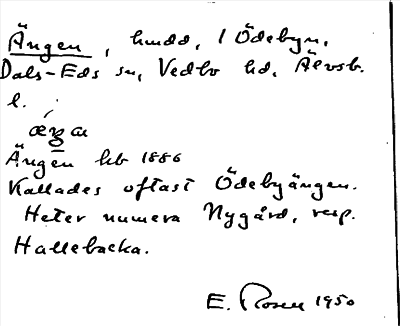 Ängen, hmdd, 1 Ödebyn,
Dals-Eds sn, Vedbo hd, Älvsb.
l.
æŋa
Ängen hfb 1886
Kallades oftast Ödebyängen.
Heter numera Nygård, resp.
Hallebacka.
E. Rosen 1950